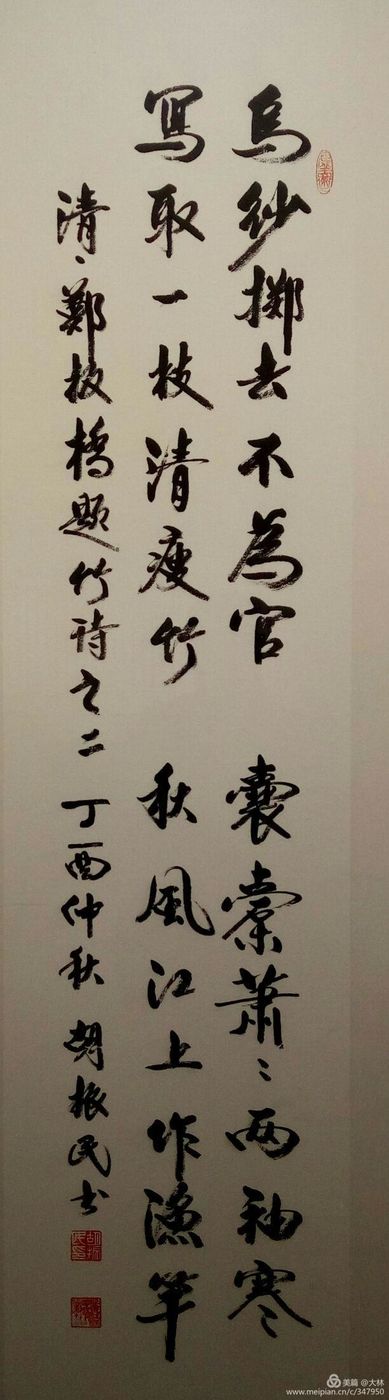 烏紗擲去不為官　囊橐蕭〻兩袖寒
寫取一枝清瘦竹　秋風江上作漁竿
清、鄭板橋題竹詩之二　丁酉仲秋　胡振民书
美篇 @大林
www.meipian.cn/c/347950